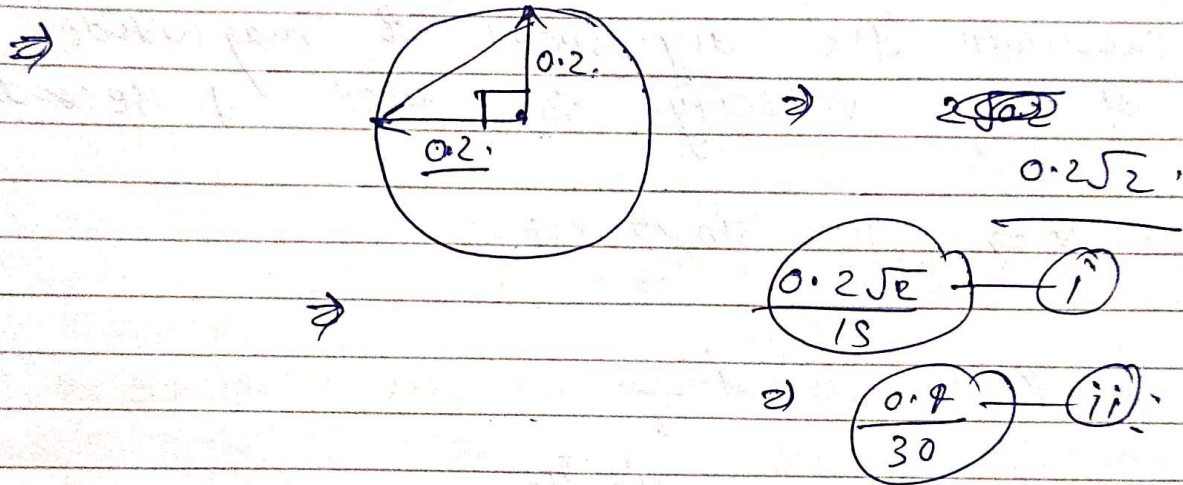 ⇒
0.2.
0.2.
⇒
0.2√2.
⇒ 0.2√2 / 15 — i
⇒ 0.4 / 30 — ii.